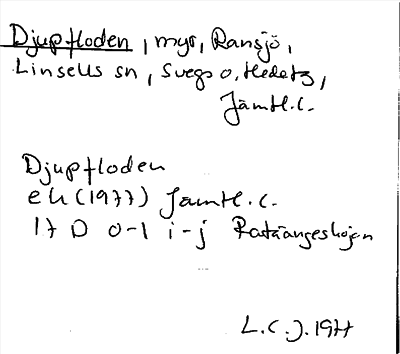 Djupfloden, myr, Ransjö,
Linsells sn, Svegs o. Hedetg,
Jämtl.l.
Djupfloden
ek (1977) Jämtl.l.
17 D 0-1 i-j
L.C.J. 1977